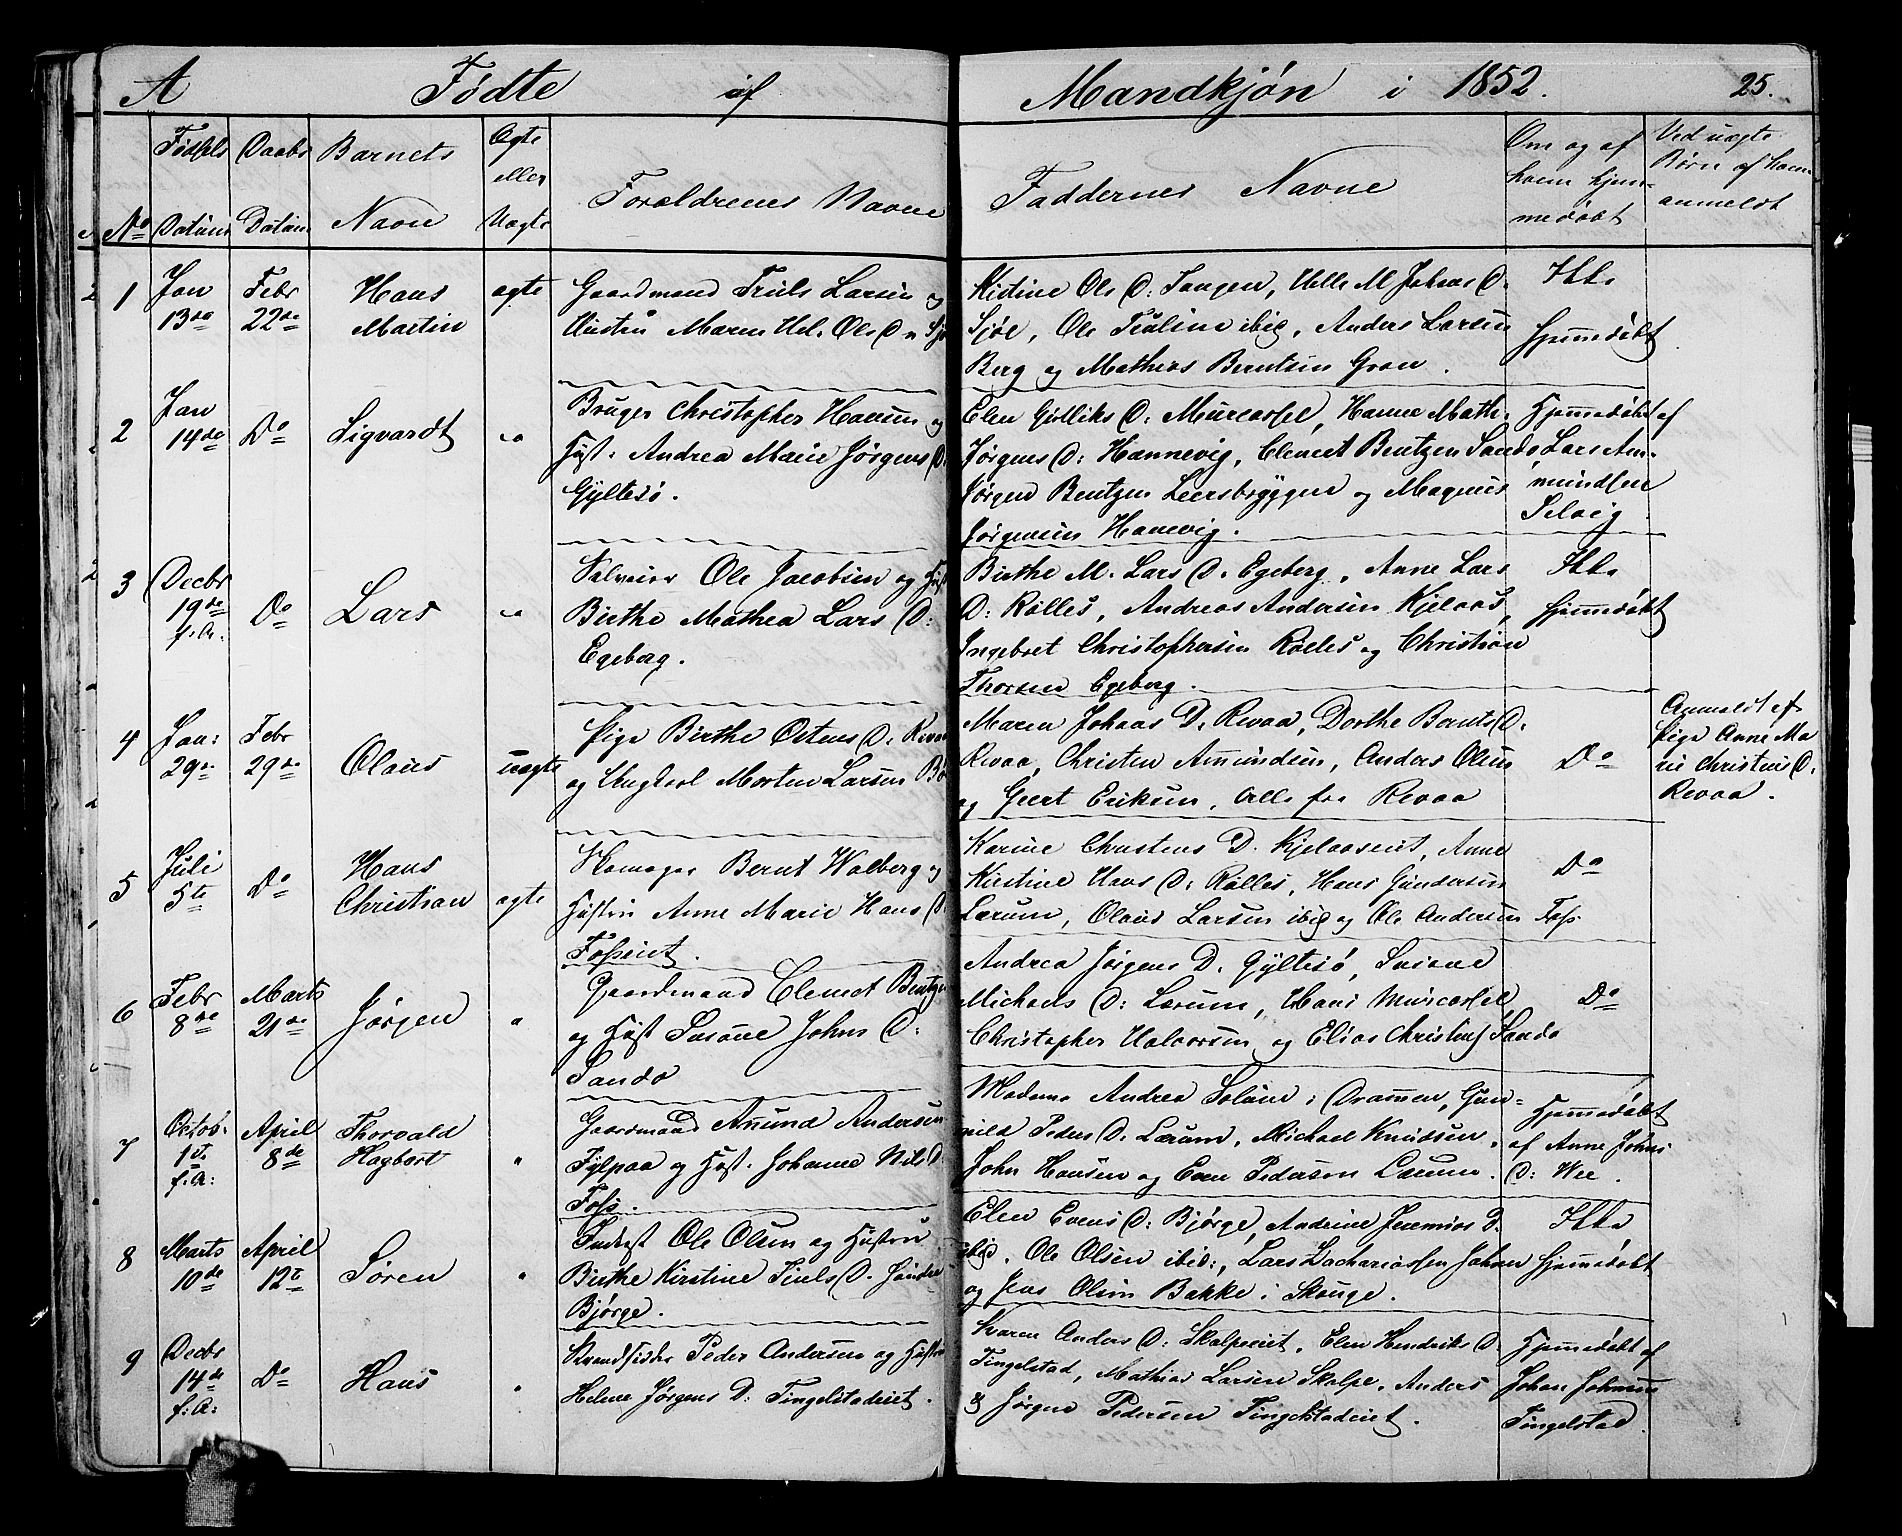 A Fødte af Mandkjøn i 1852. 25.
No
Fødsels Datum
Daabs Datum
Barnets Navn
Ægte eller Uægte
Forældrenes Navne
Faddernes Navne
Om og af hvem hjemmedøbt
Ved uægte Børn af hvem anmeldt
1
Jan 13de
Febr 22de
Hans Martin
ægte
Gaardmand Truls Larsen og
Hustru Maren Hel. Ols D.
Kistine Ols D: Tangen, Helle M Johans D.
Sjøe, Ole Paulsen ibid, Anders Larsen
Berg og Mathias Berntsen Gran.
Ikke
hjemmedøbt
2
Jan 14de
Do
Sigvardt
"
Bruger Christopher Hansen og
Hust. Andrea Marie Jørgens D:
Gyltesø.
Elen Gulliks D: Murcassel, Hanne Math.
Jørgens D: Hannevig, Clemet Bentzen Sando
Jørgen Bentzen Leersbryggen og Magnus
Jørgensen Hanevig.
Hjemmedøbt af
Lars Am-
mundsen
Selvig
3
Decbr 19de f. A:
Do
Lars
"
Ole Jacobsen og Hust
Birthe Mathea Lars D:
Egeberg.
Birthe M. Lars D. Egeberg, Anne Lars
D: Rølles, Andreas Andersen Kjelaas,
Ingebret Christophersen Rølles og Christian
Thorsen Egeberg.
Ikke
hjemmedøbt
4
Jan: 29de
Febr 29de
Olaus
uægte
Pige Birthe Ostens D. Revaa
og Ungkarl Morten Larsen
Maren Johans D. Revaa, Dorthe Bernts D.
Revaa, Christen Amundsen, Anders Olsen
og Geert Eriksen, alle fra Revaa
Do
Anmeldt af
Pige Anne Ma
rie Christens D.
Revaa.
5
Juli 5te
Do
Hans Christian
ægte
Skomager Bernt Walberg og
Hustru Anne Marie Hans D.
Fosseiet.
Karine Christens D. Kjelaaseiet, Anne
Kirstine Hans D: Rølles, Hans Gundersen
Lærum, Olaus Larsen ibid og Ole Andersen Foss.
Do
6
Febr 8de
Marts 21de
Jørgen
"
Gaardmand Clemet Bentzen
og Hust Susane Johns D:
Sando
Andrea Jørgens D. Gyltesø, Susane
Michaels D: Lærum, Hans Murcassel
Christopher Halvorsen og Elias Christens Sando
Do
7
Octob. 1te f. A:
April 8de
Thorvald Hagbart
"
Gaardmand Amund Andersen
Fylpaa og Hust. Johanne Nils D:
Foss.
Madame Andrea Solum i Drammen, Gun-
nild Peders D. Lærum, Michael Knudsen,
John Hansen og Even Pedersen Lærum.
Hjemmedøbt
af Anne Johns
D: Wee.
8
Marts 10de
April 12t
Søren
"
Inderst Ole Olsen og Hustru
Birthe Kirstine Niels D. Søndre
Bjørge.
Elen Evens D: Bjørge, Andrine Jeremias D.
ibid. Ole Olsen ibid:, Lars Zachariassen Johnsr
og Jens Olsen Bakke i Skouge.
Ikke
hjemmedøbt
9
Decbr 14de f: A:
Do
Hans
"
Strandsidder Peder Andersen og Hustru
Helene Jørgens D: Tingelstadeiet.
Maren Anders D: Skalpeeiet, Elen Hendriks D:
Tingelstad, Mathias Larsen Skalpe, Anders
& Jørgen Pedersen Tingelstadeiet.
Hjemmedøbt af
Johan Johnsen
Tingelstad.